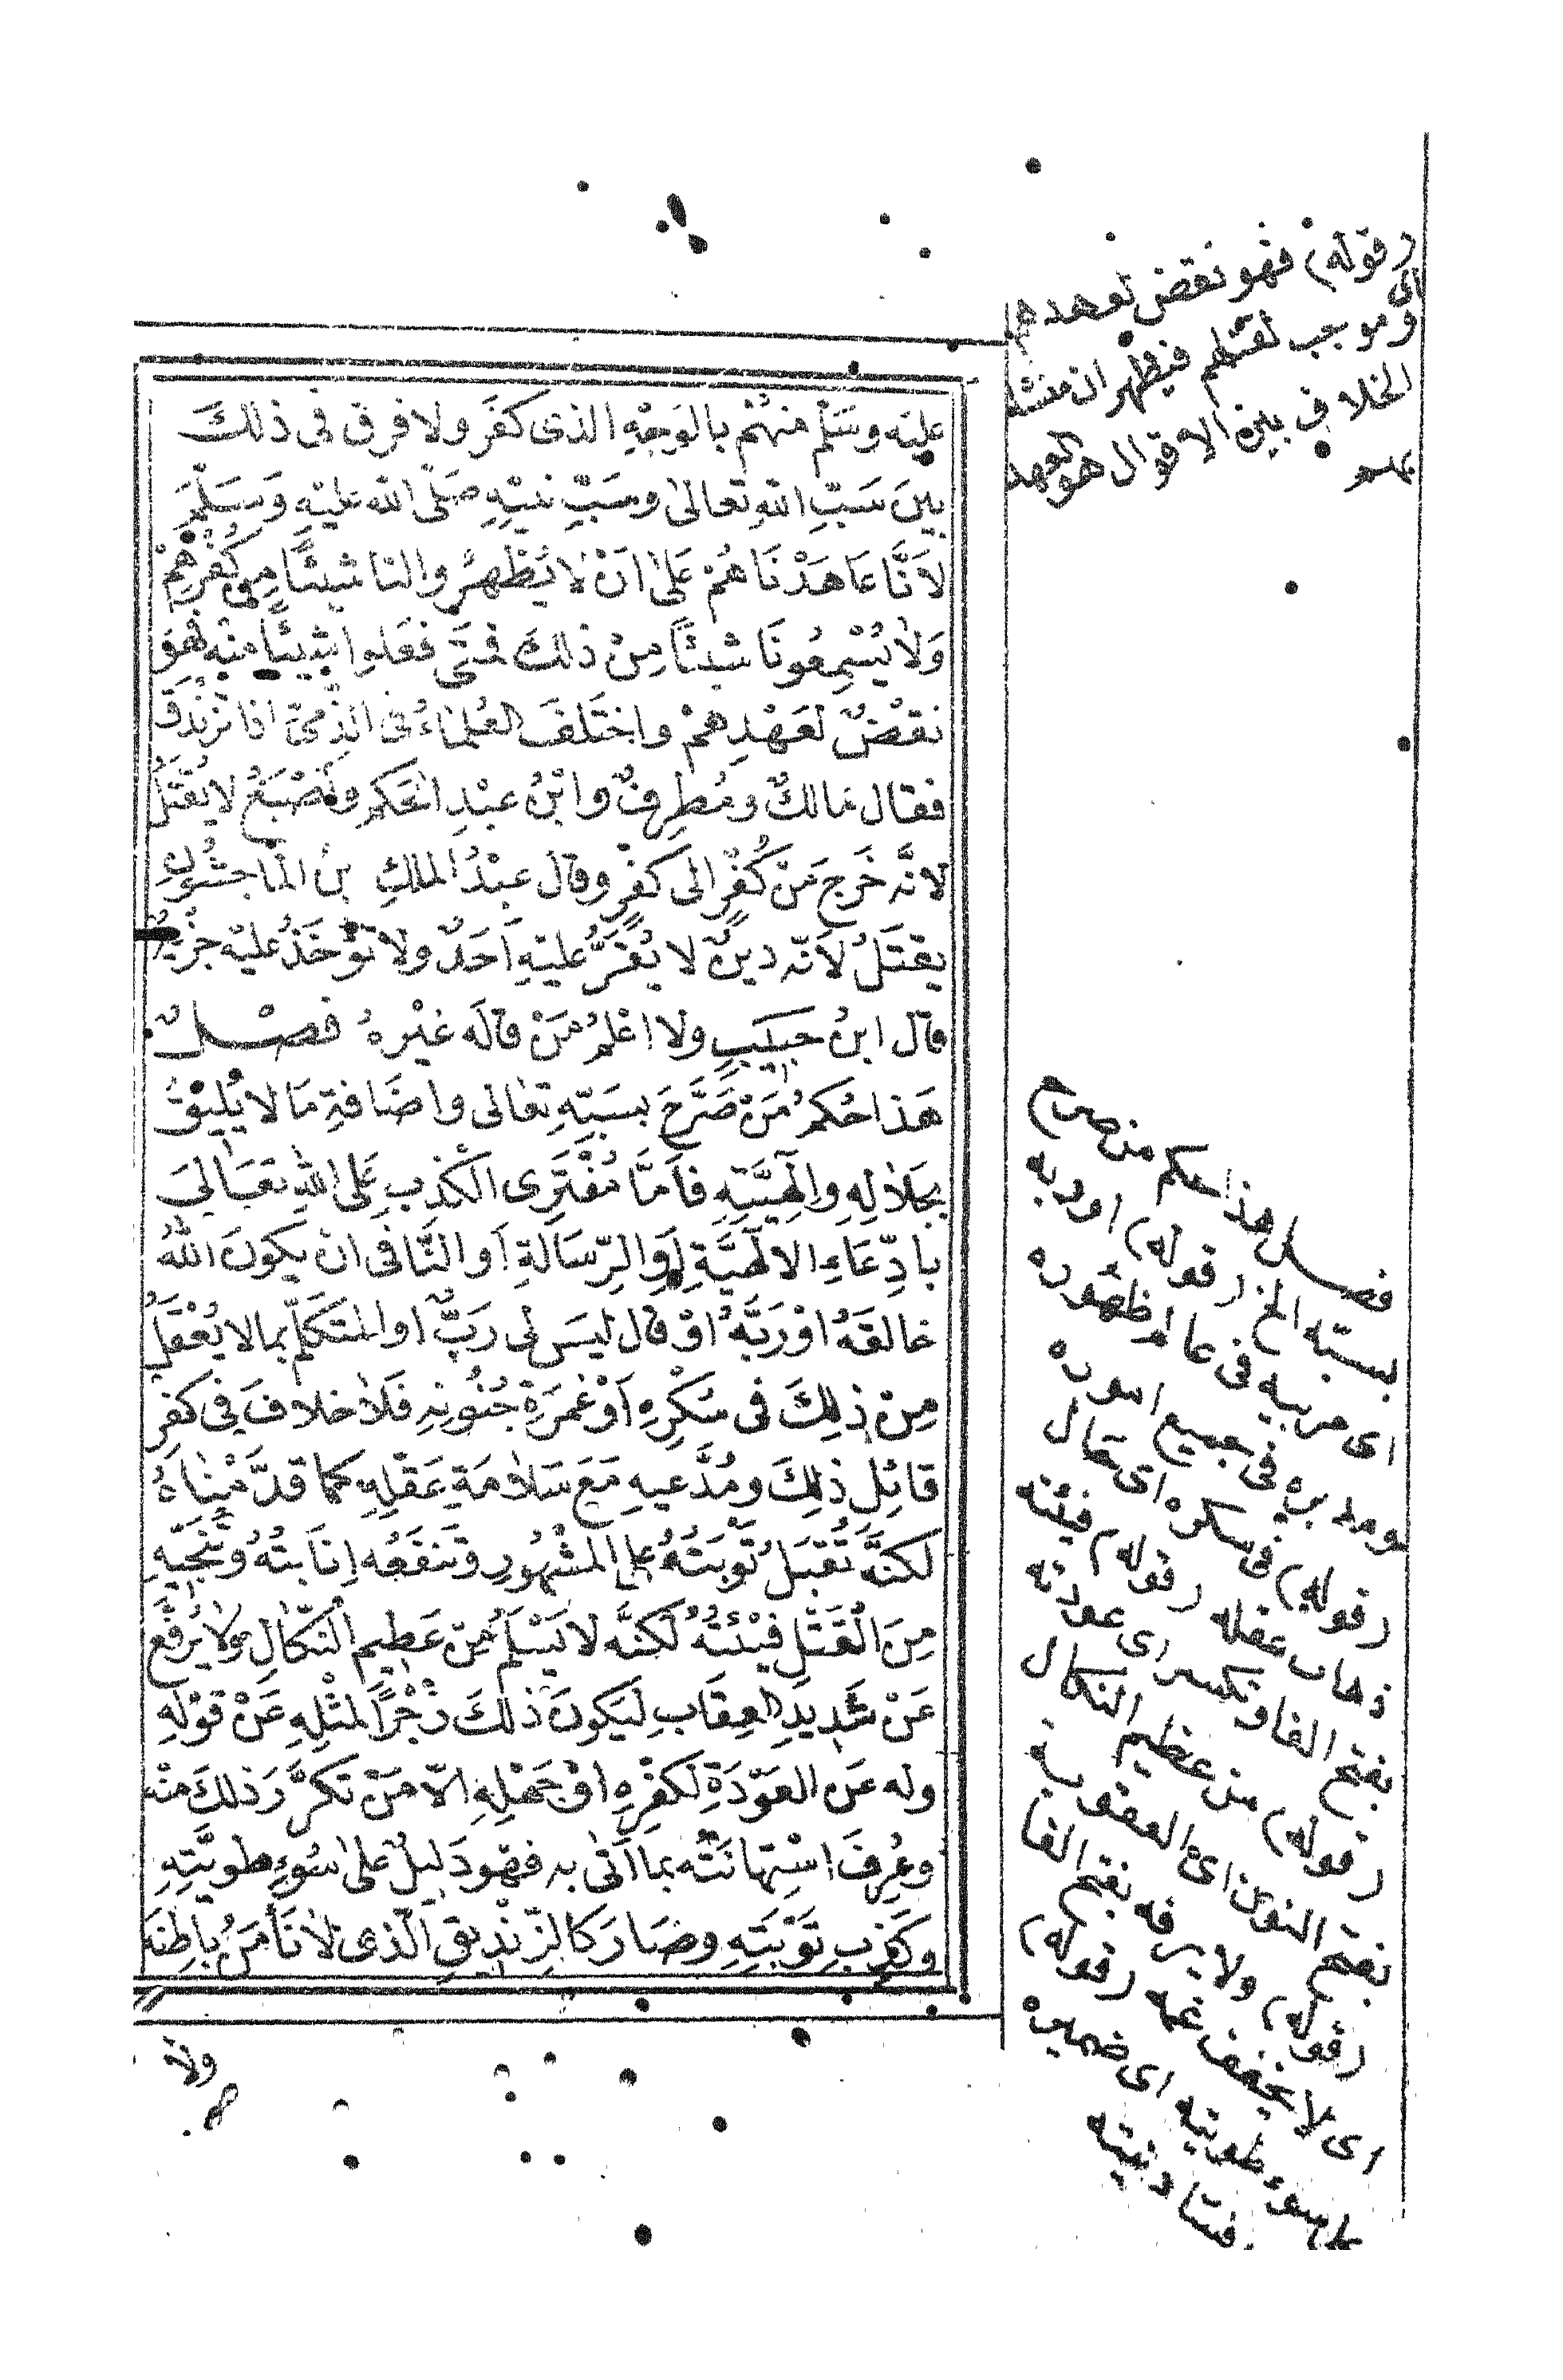 عليه وسَلّم منهُمْ بالوَجْهِ الذى كفَر ولا فرق فى ذلكَ
بينَ سَبّ اللهِ تعالىٰ وسَبّ نبيّهِ صَلّى الله عليْهِ وَسَلّمَ
لأَنَّا عَاهَدْنَاهُمْ عَلىٰ اَنْ لا يُظْهِرُوا لنا شيئًا مِنْ كُفْرِهِمْ
وَلا يُسْمِعُونَا شيْئًا مِنْ ذلكَ فمتَى فعَلوا شيئًا منْه فهوَ
نقضٌ لعَهْدِهمْ واختَلفَ العُلماءُ فى الذّمىّ اذا تزَنْدَقَ
فقال مَالكٌ ومُطرِفٌ وابْنُ عبْدِ الحَكَم وأصْبَغُ لا يُقْتَلُ
لانَّه خَرجَ مَنْ كُفْرٍ الى كفْرٍ وقال عبْدُ الملكِ بنُ الماجشُونِ
يقتَلُ لأنّه دينٌ لا يُقَرُّ عليْهِ اَحَدٌ ولا تؤْخَذُ عليْه جزْيَةٌ
قال ابنُ حَبيبٍ ولا اعْلمُ مَنْ قالَه غيْرهُ فصْلٌ
هَذا حُكمُ مَنْ صَرَّحَ بسَبّهِ تعالى واضَافةِ مَا لا يَليْقُ
بجَلالِهِ وإلٰهِيَّتِهِ فأمَّا مُفْتَرِى الْكَذِبِ عَلى اللهِ تعَالىَ
بادِّعَاءِ الالٰهيَّةِ اَوِ الرِّسَالةِ اَو النَّافى ان يكونَ اللهُ
خالقَهُ اوْ رَبَّهُ اوْ قال ليسَ لى رَبٌّ او المتكَلّم بما لا يُعْقَلُ
مِنْ ذلِكَ فى سُكْرِهِ اَوْ غمْرَةِ جُنُونِهِ فَلا خلافَ فى كفرِ
قائِلِ ذلِكَ ومُدَّعيهِ مَعَ سَلامَةِ عَقْلِهِ كما قدَّمْنَاهُ
لكنَّه تُقْبَلُ توْبَتُهُ على المشْهُورِ وتَنفَعُه اِنَابتُهُ وتُنَجّيهِ
مِنَ الْقَتْلِ فيْئتُهُ لكنَّه لا يَسْلَمُ مِنْ عَظِيمِ النّكالِ ولا يُرَفَّهُ
عَنْ شَدِيدِ العِقَابِ لِيَكونَ ذلكَ زَجْرًا لمثْلِهِ عَنْ قوْلِهِ
وله عَن العَوْدَةِ لكفْرِهِ اوْ جَهْلِهِ الاّ مَنْ تكرَّرَ ذلكَ منْه
وعُرِفَ اسْتِهانَتُه بما اَتىٰ به فهو دَليلٌ علىٰ سُوءِ طويَّتِهِ
وكذِبِ توْبَتِهِ وصَارَ كالزِّنْديقِ الّذى لا نَأمَنُ باطِنَه
ولا
(قوله) فهو نقض لعهدهم
اى
وموجب لقتلهم فيظهر ان منشأ
الخلاف بين الاقوال هو العهد
فصل هذا حكم من صرح
بسبه الخ (قوله) او ربه
اى مربيه فى عالم ظهوره
ومدبره فى جميع اموره
(قوله) فى سكره اى حال
ذهاب عقله (قوله) فيئته
بفتح الفا وتكسر اى عودته
(قوله) من عظيم النكال
بفتح النون اى العقوبة
(قوله) ولا يرفه بفتح الفا
اى لا يخفف عنه (قوله)
سوء طويته اى ضميره
ونيته